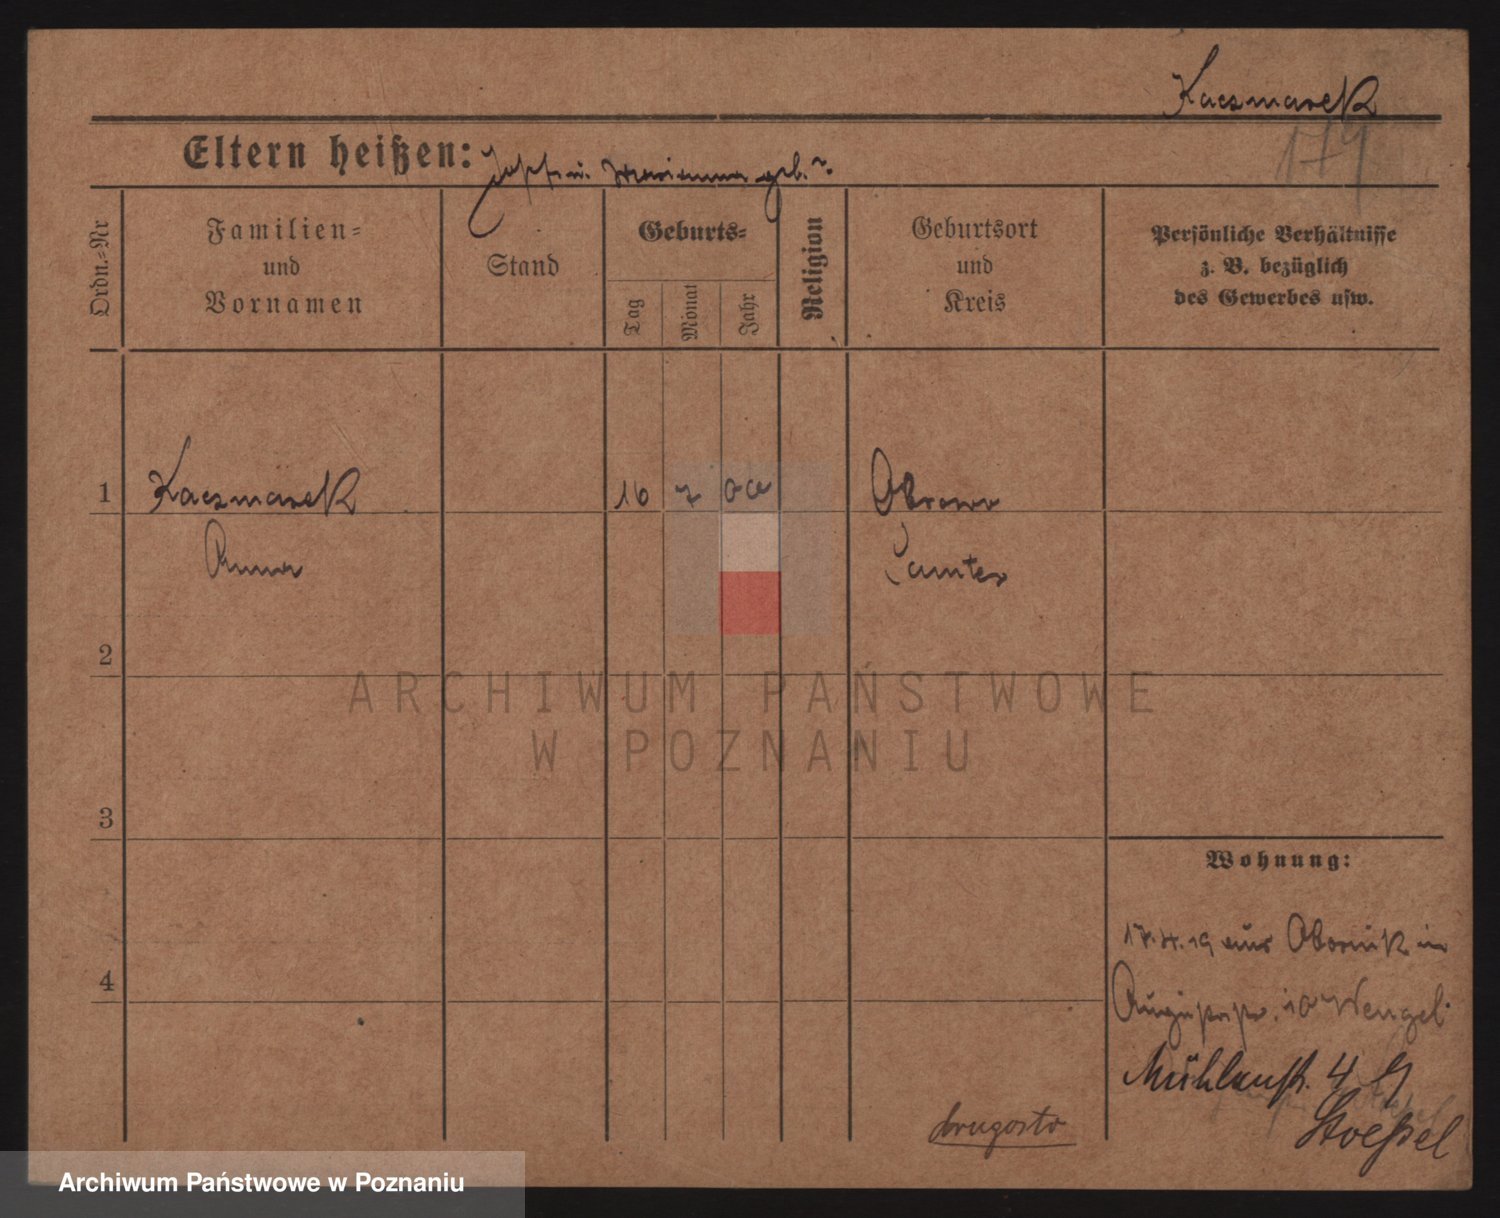 Kaczmarek
179
Eltern heißen: Josef u. Marianna geb. ?
Ordn.-Nr
Familien-
und
Vornamen
Stand
Geburts-
Tag
Monat
Jahr
Religion
Geburtsort
und
Kreis
Persönliche Verhältnisse
z. B. bezüglich
des Gewerbes usw.
1 Kaczmarek 16 7 00 Obrowo
Anna Samter
2
ARCHIWUM PAŃSTWOWE
W POZNANIU
3
Wohnung:
17.4.19 aus Obornik in
4
10 Wengel
Mühlenstr. 4
Stoeßel
Archiwum Państwowe w Poznaniu